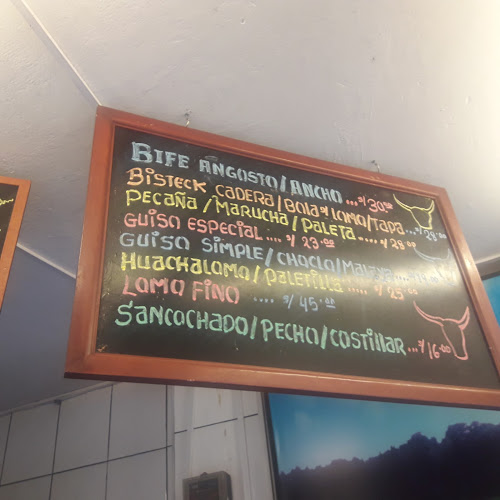 BIFE ANGOSTO/ANCHO ...S/30.00
BISTECK CADERA/BOLA d/ LOMO/TAPA ...S/28.00
PECAÑA/MARUCHA/PALETA .... S/28.00
GUISO ESPECIAL .... S/ 23.00
GUISO SIMPLE/CHOCLO/MALAYA
HUACHALOMO/PALETILLA ..... S/ 25.00
LOMO FINO .... S/ 45.00
SANCOCHADO/PECHO/COSTILLAR ...S/16.00